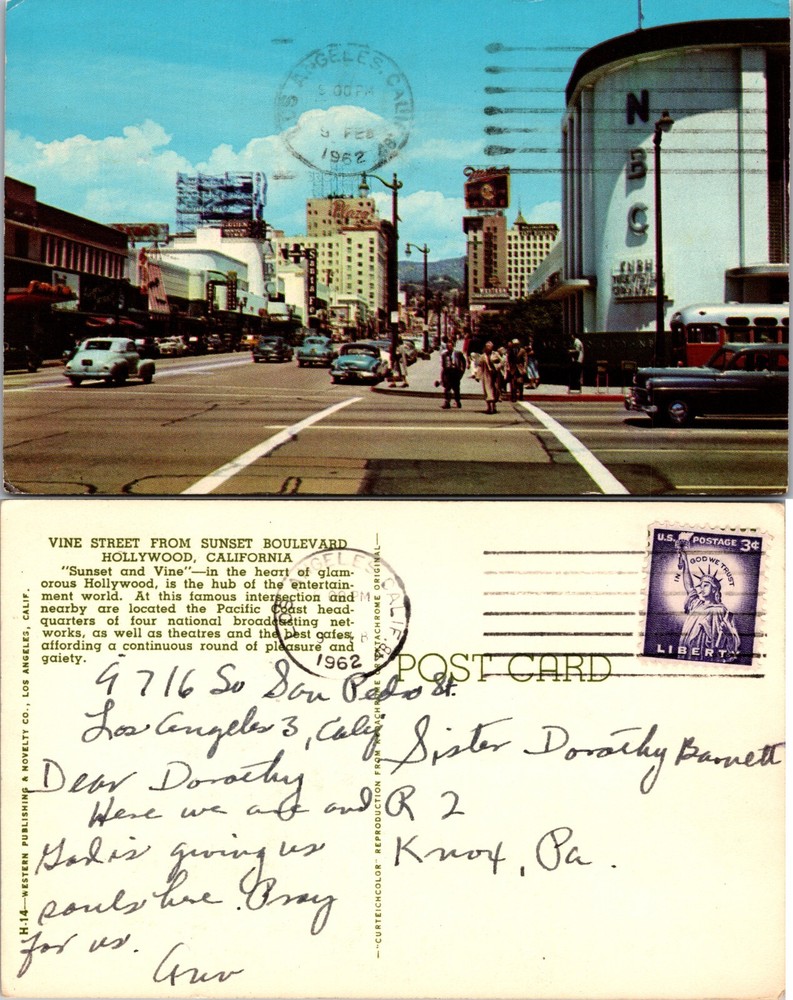 LOS ANGELES, CALIF.
9 00 PM
9 FEB
1962
N
B
C
Plaza
VINE STREET FROM SUNSET BOULEVARD
HOLLYWOOD, CALIFORNIA
"Sunset and Vine"—in the heart of glam-
orous Hollywood, is the hub of the entertain-
ment world. At this famous intersection and
nearby are located the Pacific Coast head-
quarters of four national broadcasting net-
works, as well as theatres and the best cafes,
affording a continuous round of pleasure and
gaiety.
LOS ANGELES, CALIF.
1962
U.S. POSTAGE 3¢
IN GOD WE TRUST
LIBERTY
POST CARD
9716 So San Pedro St.
Los Angeles 3, Calif
Dear Dorothy
Here we are and
God is giving us
souls here. Pray
for us.
Ann
Sister Dorothy Barnett
R 2
Knox, Pa.
H-14—WESTERN PUBLISHING & NOVELTY CO., LOS ANGELES, CALIF.
"CURTEICHCOLOR" REPRODUCTION FROM EKTACHROME ORIGINAL